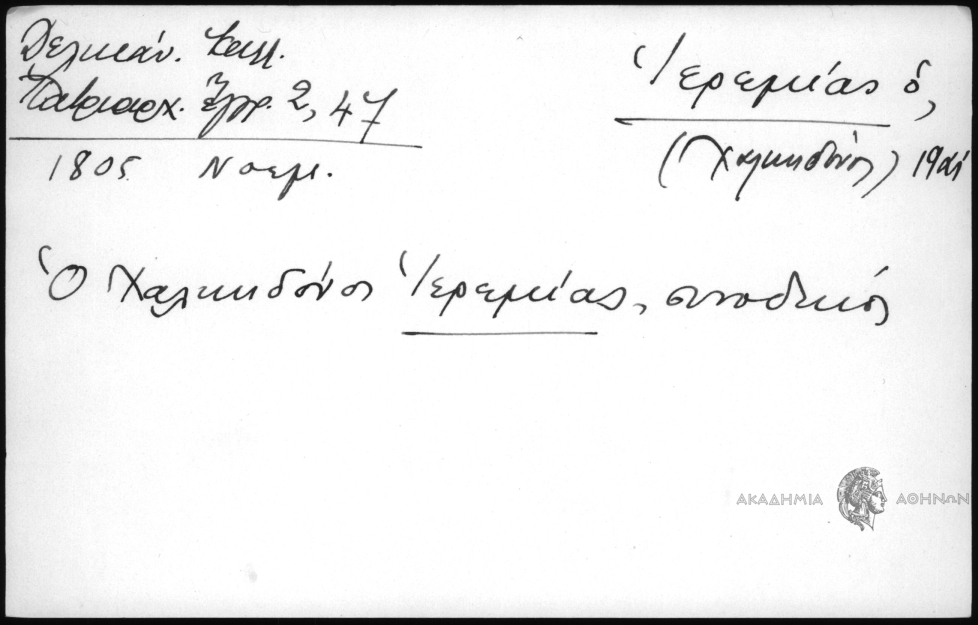 Δελικάν. Καλλ.
Πατριαρχ. Ἔγγρ. 2, 47
1805 Νοεμ.
Ἱερεμίας ὁ,
(Χαλκηδόνος) 19αι
Ὁ Χαλκηδόνος Ἱερεμίας, συνοδικός
ΑΚΑΔΗΜΙΑ ΑΘΗΝΩΝ